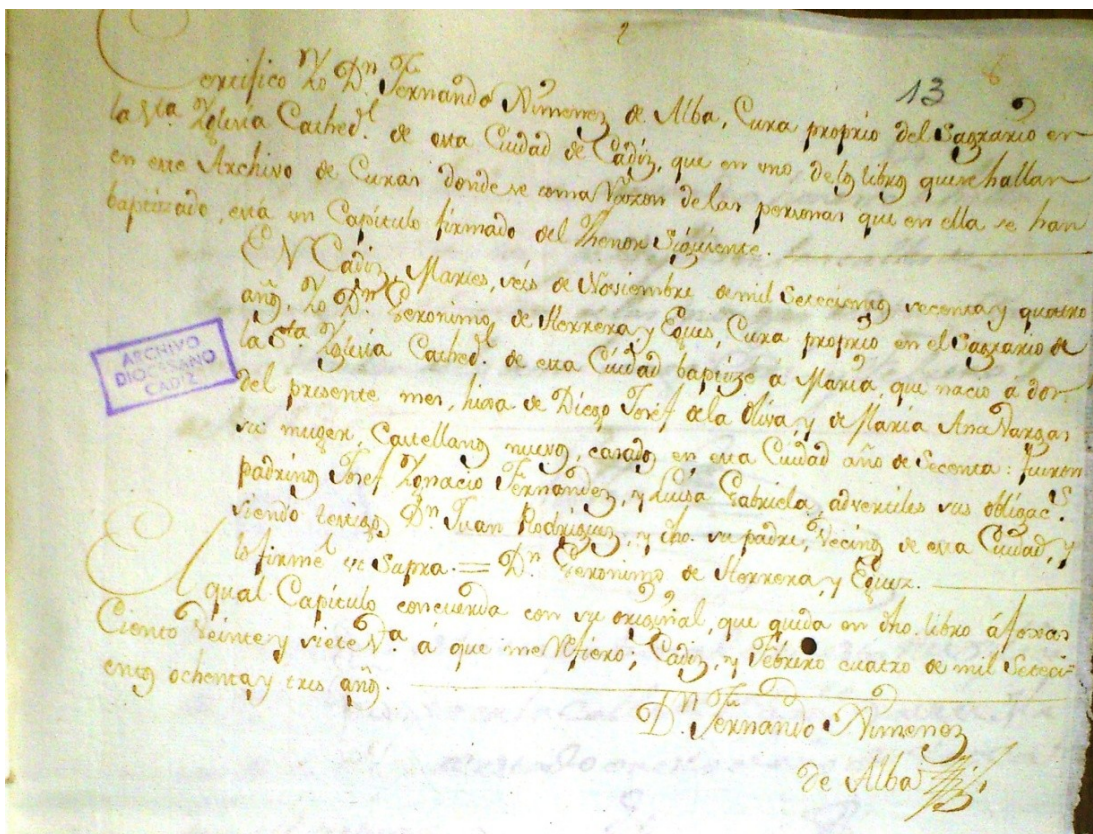 2
13 8
Certifico Yo Dn. Fernando Ximenez de Alba, Cura proprio del Sagrario en
la Sta. Yglesia Cathedl. de esta Ciudad de Cadiz, que en uno de los libros que se hallan
en este Archivo de Curas donde se toma Razon de las personas que en ella se han
baptizado, está un Capitulo firmado del Thenor Siguiente.
EN Cadiz, Martes, seis de Noviembre de mil Setecientos sesenta y quatro
años, Yo Dn. Geronimo de Herrera y Eques, Cura proprio en el Sagrario de
la Sta. Yglesia Cathedl. de esta Ciudad baptizé a Maria, que nació á dos
del presente mes, hixa de Diego Josef de la Oliva, y de Maria Ana Vargas
su muger, Castellanos nuevos, casados en esta Ciudad año de Sesenta: fueron
padrinos Josef Ygnacio Fernandez, y Luisa Gabriela, advertiles sus obligacs.
siendo testigos Dn. Juan Rodriguez, y dho. su padre, Vecinos de esta Ciudad, y
lo firmé ut Supra. = Dn. Geronimo de Herrera, y Equez.
El qual Capitulo concuerda con su original, que queda en dho. libro á foxas
Ciento Veinte y siete Va. á que me Refiero; Cadiz, y Febrero cuatro de mil Seteci-
entos ochenta y tres años.
Dn. Fernando Ximenez
de Alba
ARCHIVO
DIOCESANO
CADIZ